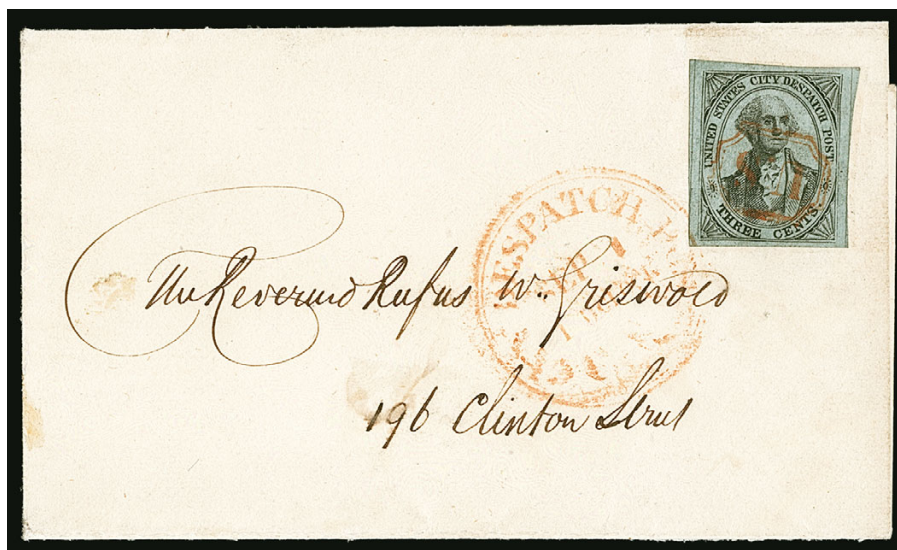 UNITED STATES CITY DESPATCH POST.
THREE CENTS.
DESPATCH
The Reverend Rufus W. Griswold
196 Clinton Street